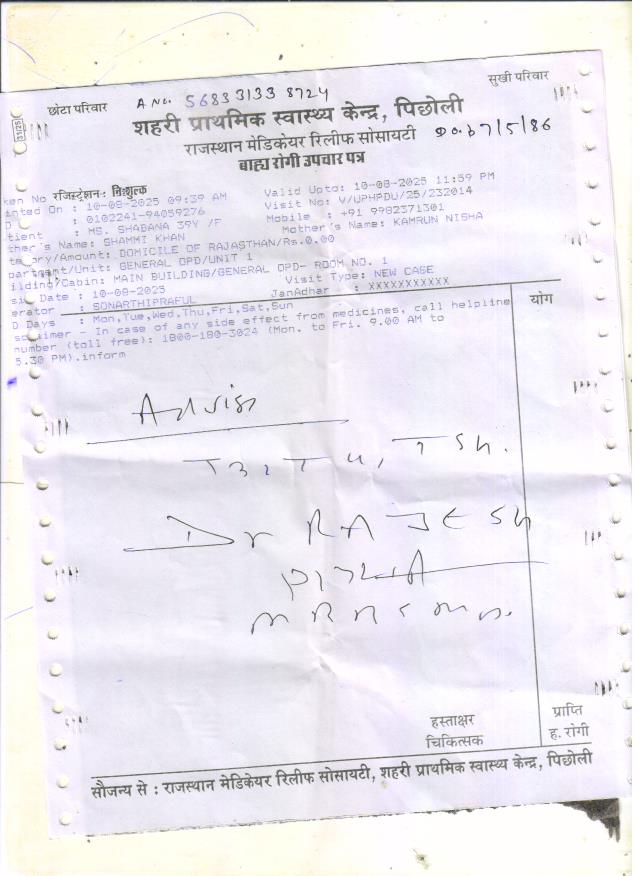 छोटा परिवार
सुखी परिवार
A No. 5683 3133 8724
शहरी प्राथमिक स्वास्थ्य केन्द्र, पिछोली
राजस्थान मेडिकेयर रिलीफ सोसायटी
D o. b 7/5/86
बाह्य रोगी उपचार पत्र
ken No रजिस्ट्रेशन : निःशुल्क
Valid Upto: 10-08-2025 11:59 PM
inted On : 10-08-2025 09:39 AM
Visit No: V/UPHPDU/25/232014
D : 0102241-94059276
Mobile : +91 9982371301
tient : MS. SHABANA 39Y /F
Mother's Name: KAMRUN NISHA
ther's Name: SHAMMI KHAN
te ory/Amount: DOMICILE OF RAJASTHAN/Rs.0.00
partment/Unit: GENERAL OPD/UNIT 1
ilding/Cabin: MAIN BUILDING/GENERAL OPD- ROOM NO. 1
si Date : 10-08-2025
Visit Type: NEW CASE
erator : SONARTHIPRAFUL
JanAdhar : XXXXXXXXXXX
D Days : Mon,Tue,Wed,Thu,Fri,Sat,Sun
योग
sclaimer - In case of any side effect from medicines, call helpline
number (toll free): 1800-180-3024 (Mon. to Fri. 9.00 AM to
5.30 PM).inform
T3, T4, TSH.
Dr RAJESH
हस्ताक्षर
चिकित्सक
प्राप्ति
ह. रोगी
सौजन्य से : राजस्थान मेडिकेयर रिलीफ सोसायटी, शहरी प्राथमिक स्वास्थ्य केन्द्र, पिछोली